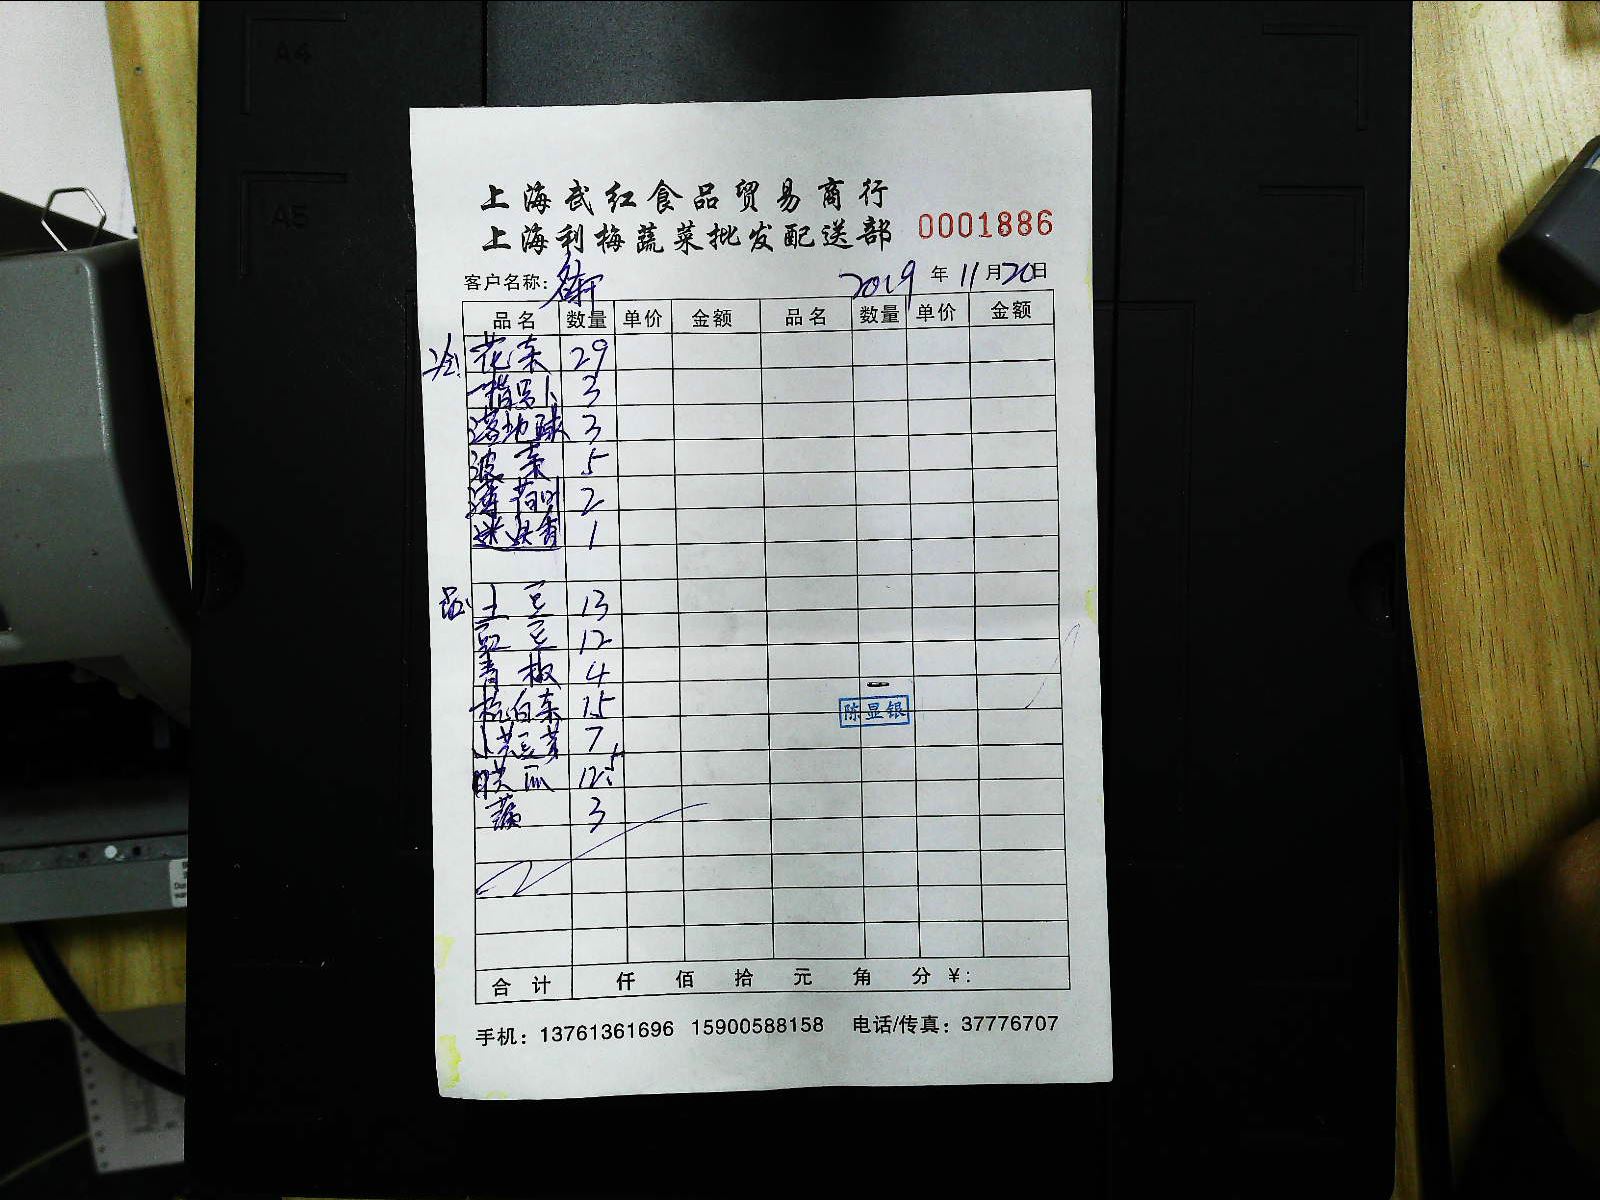 A4
A5
上海武红食品贸易商行
上海利梅蔬菜批发配送部 0001886
客户名称: 2019 年 11 月 20 日
品名 数量 单价 金额 品名 数量 单价 金额
花菜 29
一指罗卜 3
落地球 3
波菜 5
薄荷叶 2
迷迭香 1
土豆 13
豇豆 12
青椒 4
杭白菜 15
小黄豆芽 7
12.5
3
陈显银
合计 仟 佰 拾 元 角 分 ¥:
手机: 13761361696 15900588158 电话/传真: 37776707